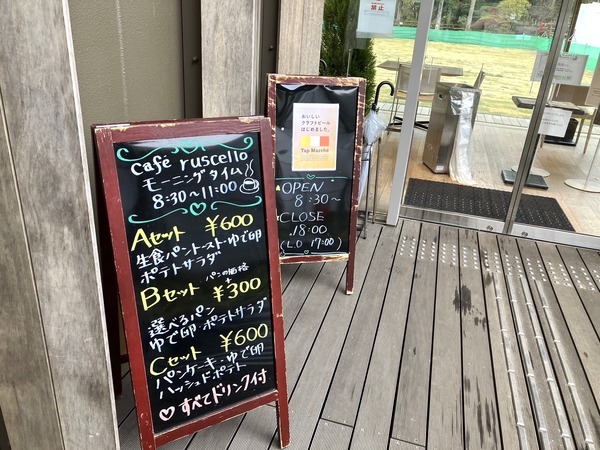 café ruscello
モーニングタイム
8:30〜11:00
Aセット ¥600
生食パントースト・ゆで卵
ポテトサラダ
Bセット パンの価格
+
¥300
選べるパン
ゆで卵・ポテトサラダ
Cセット ¥600
パンケーキ・ゆで卵
ハッシュドポテト
♡すべてドリンク付
おいしい
クラフトビール
はじめました。
Tap Marché
OPEN
8:30〜
CLOSE
18:00
(L.O 17:00)
禁止